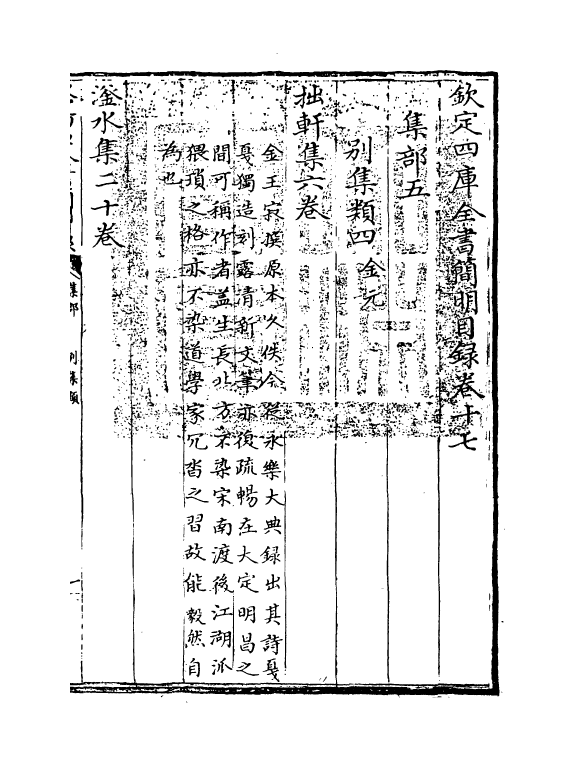 欽定四庫全書簡明目録卷十七
集部五
別集類四 金元
拙軒集六卷
金王寂撰原本久佚今從永樂大典録出其詩戛
戛獨造刻露清新文筆亦復疏暢在大定明昌之
間可稱作者蓋生長北方不染宋南渡後江湖派
猥瑣之格亦不染道學家冗沓之習故能毅然自
為也
滏水集二十卷
集部 別集類
一